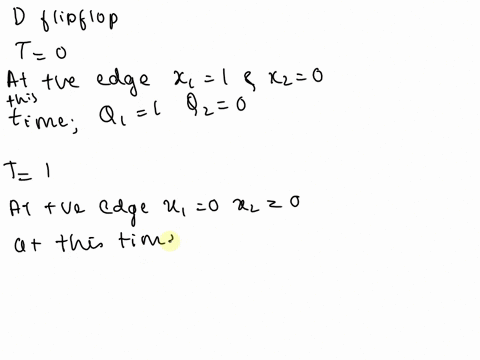 D flipflop
T = 0
At +ve edge x1 = 1 & x2 = 0
this
time; Q1 = 1 Q2 = 0
T = 1
At +ve edge x1 = 0 x2 = 0
at this time